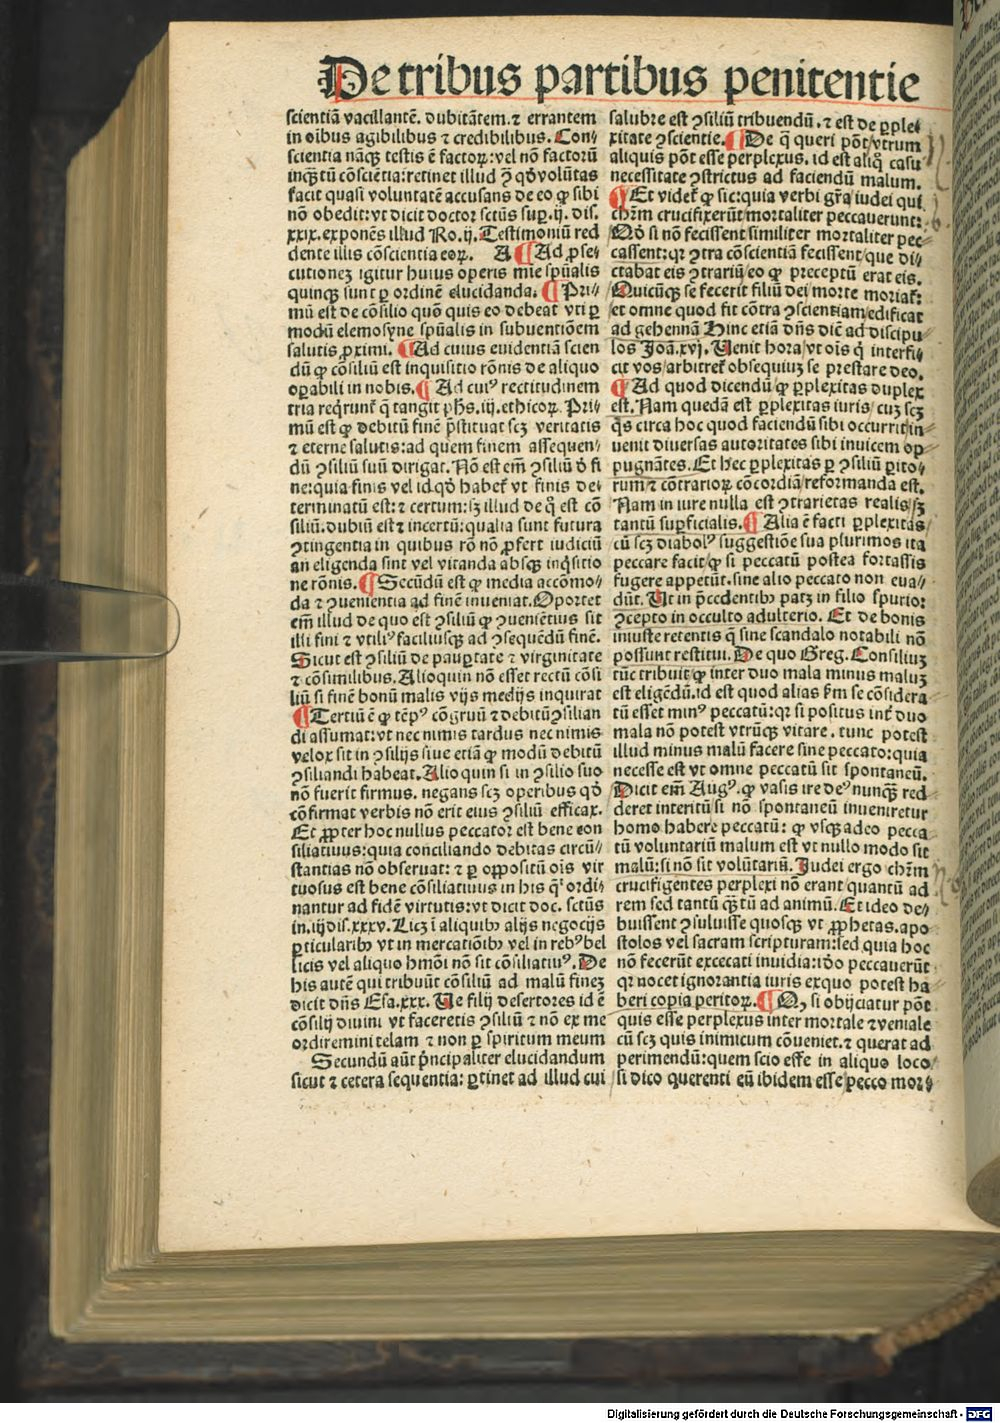 De tribus partibus penitentie
scientiã vacillantẽ. dubitãtem. ⁊ errantem
in oĩbus agibilibus ⁊ credibilibus. Con⸗
scientia nãqꝫ testis ẽ factoꝝ: vel nõ factorũ
inqꝫtũ cõsciẽtia: retinet illud ꝙ̃ qđ volũtas
facit quasi voluntatẽ accusans de eo ꝙ sibi
nõ obedit: vt dicit doctor sctũs sup̱. ij. dis.
xxix. exponẽs illud Ro. ij. Testimoniũ red
dente illis cõscientia eoꝝ. A ¶ Ad ꝓse⸗
cutionez igitur huius operis mie spũalis
quinqꝫ sunt ꝑ ordinẽ elucidanda. ¶ Pri⸗
mũ est de cõsilio quõ quis eo debeat vti ꝑ
modũ elemosyne spũalis in subuentiõem
salutis ꝓximi. ¶ Ad cuius euidentiã scien
dũ ꝙ cõsiliũ est inquisitio rõnis de aliquo
oꝑabili in nobis. ¶ Ad cuiꝰ rectitudinem
tria reqrunt̃ q̃ tangit pħs. iij. ethicoꝝ. Pri⸗
mũ est ꝙ debitũ finẽ p̃stituat scꝫ veritatis
⁊ eterne salutis: ad quem finem assequen⸗
dũ ꝯsiliũ suũ dirigat. Nõ est em̃ ꝯsiliũ đ fi
ne: quia finis vel id qđ habet̃ vt finis de⸗
terminatũ est: ⁊ certum: sꝫ illud de q̊ est cõ
siliũ. dubiũ est ⁊ incertũ: qualia sunt futura
ꝯtingentia in quibus rõ nõ ꝓfert iudiciũ
an eligenda sint vel vitanda absqꝫ inq̊sitio
ne rõnis. ¶ Secũdũ est ꝙ media accõmo⸗
da ⁊ ꝯuenientia ad finẽ inueniat. Oportet
em̃ illud de quo est ꝯsiliũ ꝙ ꝯueniẽtius sit
illi fini ⁊ vtiliꝰ faciliusqꝫ ad ꝯsequẽdũ finẽ.
Sicut est ꝯsiliũ de pauꝑtate ⁊ virginitate
⁊ cõsimilibus. Alioquin nõ esset rectũ cõsi
liũ si finẽ bonũ malis vijs medijs inquirat
¶ Tertiũ ẽ ꝙ tẽpꝰ cõgruũ ⁊ debitũ ꝯsilian
di assumat: vt nec nimis tardus nec nimis
velox sit in ꝯsilijs siue etiã ꝙ modũ debitũ
ꝯsiliandi habeat. Alioquin si in ꝯsilio suo
nõ fuerit firmus. negans scꝫ operibus qđ
cõfirmat verbis nõ erit eius ꝯsiliũ efficax.
Et ꝓpter hoc nullus peccator est bene con
siliatiuus: quia conciliando debitas circũ⸗
stantias nõ obseruat: ⁊ ꝑ oppositũ oĩs vir
tuosus est bene cõsiliatiuus in his q̃ ordi⸗
nantur ad fidẽ virtutis: vt dicit doc. sctũs
in. iij dis. xxxv. Licꝫ ĩ aliquibꝫ alijs negocijs
ꝑticularibꝫ vt in mercatiõibꝫ vel in rebꝰ bel
licis vel aliquo hmõi nõ sit cõsiliatiuꝰ. De
his autẽ qui tribuũt cõsiliũ ad malũ finez
dicit dñs Esa. xxx. Ve filij desertores id ẽ
cõsilij diuini vt faceretis ꝯsiliũ ⁊ nõ ex me
ordiremini telam ⁊ non ꝑ spiritum meum
Secundũ aũt p̃ncipaliter elucidandum
sicut ⁊ cetera sequentia: ꝑtinet ad illud cui
salubre est ꝯsiliũ tribuendũ. ⁊ est de ꝑple⸗
xitate ꝯscientie. ¶ De q̃ queri põt/ vtrum
aliquis põt esse perplexus. id est aliq̊ casu
necessitate ꝯstrictus ad faciendũ malum.
¶ Et videt̃ ꝙ sic: quia verbi grã iudei qui
chr̃m crucifixerũt/ mortaliter peccauerunt:
Qđ si nõ fecissent similiter mortaliter pec⸗
cassent: qꝛ ꝯtra cõscientiã fecissent/ que di⸗
ctabat eis ꝯtrariũ/ eo ꝙ preceptũ erat eis.
Quicũqꝫ se fecerit filiũ dei morte moriat̃:
et omne quod fit cõtra ꝯscientiam/ edificat
ad gehennã Hinc etiã dñs dic̃ ad discipu
los Joã. xvj. Uenit hora/ vt oĩs q̇ interfi⸗
cit vos/ arbitret̃ obsequiuz se prestare deo.
¶ Ad quod dicendũ ꝙ ꝑplexitas duplex
est. Nam quedã est ꝑplexitas iuris/ cuz scꝫ
q̊s circa hoc quod faciendũ sibi occurrit/ in⸗
uenit diuersas autoritates sibi inuicem op⸗
pugnãtes. Et hec ꝑplexitas ꝑ ꝯsiliũ ꝑito⸗
rum/ ⁊ cõtrarioꝝ cõcordiã/ reformanda est.
Nam in iure nulla est ꝯtrarietas realis/ sꝫ
tantũ suꝑficialis. ¶ Alia ẽ facti ꝑplexitas/
cũ scꝫ diabolꝰ suggestiõe sua plurimos ita
peccare facit/ ꝙ si peccatũ postea fortassis
fugere appetũt. sine alio peccato non eua⸗
dũt. Ut in p̃cedentibꝫ patꝫ in filio spurio:
ꝯcepto in occulto adulterio. Et de bonis
iniuste retentis q̃ sine scandalo notabili nõ
possunt restitui. De quo Greg. Consiliuz
tũc tribuit/ ꝙ inter duo mala minus maluz
est eligẽdũ. id est quod alias fm se cõsidera⸗
tũ esset minꝰ peccatũ: qꝛ si positus int̃ duo
mala nõ potest vtrũqꝫ vitare. tunc potest
illud minus malũ facere sine peccato: quia
necesse est vt omne peccatũ sit spontaneũ.
Dicit em̃ Augꝰ. ꝙ vasis ire deꝰ nunqꝫ̃ red⸗
deret interitũ si nõ spontaneũ inueniretur
homo habere peccatũ: ꝙ vsqꝫ adeo pecca⸗
tũ voluntariũ malum est vt nullo modo sit
malũ: si nõ sit volũtariũ. Judei ergo chr̃m
crucifigentes perplexi nõ erant/ quantũ ad
rem sed tantũ qꝫtũ ad animũ. Et ideo de⸗
buissent ꝯsuluisse quosqꝫ vt ꝓphetas. apo⸗
stolos vel sacram scripturam: sed quia hoc
nõ fecerũt excecati inuidia: iđo peccauerũt
qꝛ nocet ignorantia iuris exquo potest ha⸗
beri copia peritoꝝ. ¶ Q, si obijciatur põt
quis esse perplexus inter mortale ⁊ veniale
cũ scꝫ quis inimicum cõueniet. ⁊ querat ad
perimendũ: quem scio esse in aliquo loco⸗
si dico querenti eũ ibidem esse/ pecco mor⸗
Digitalisierung gefördert durch die Deutsche Forschungsgemeinschaft - DFG